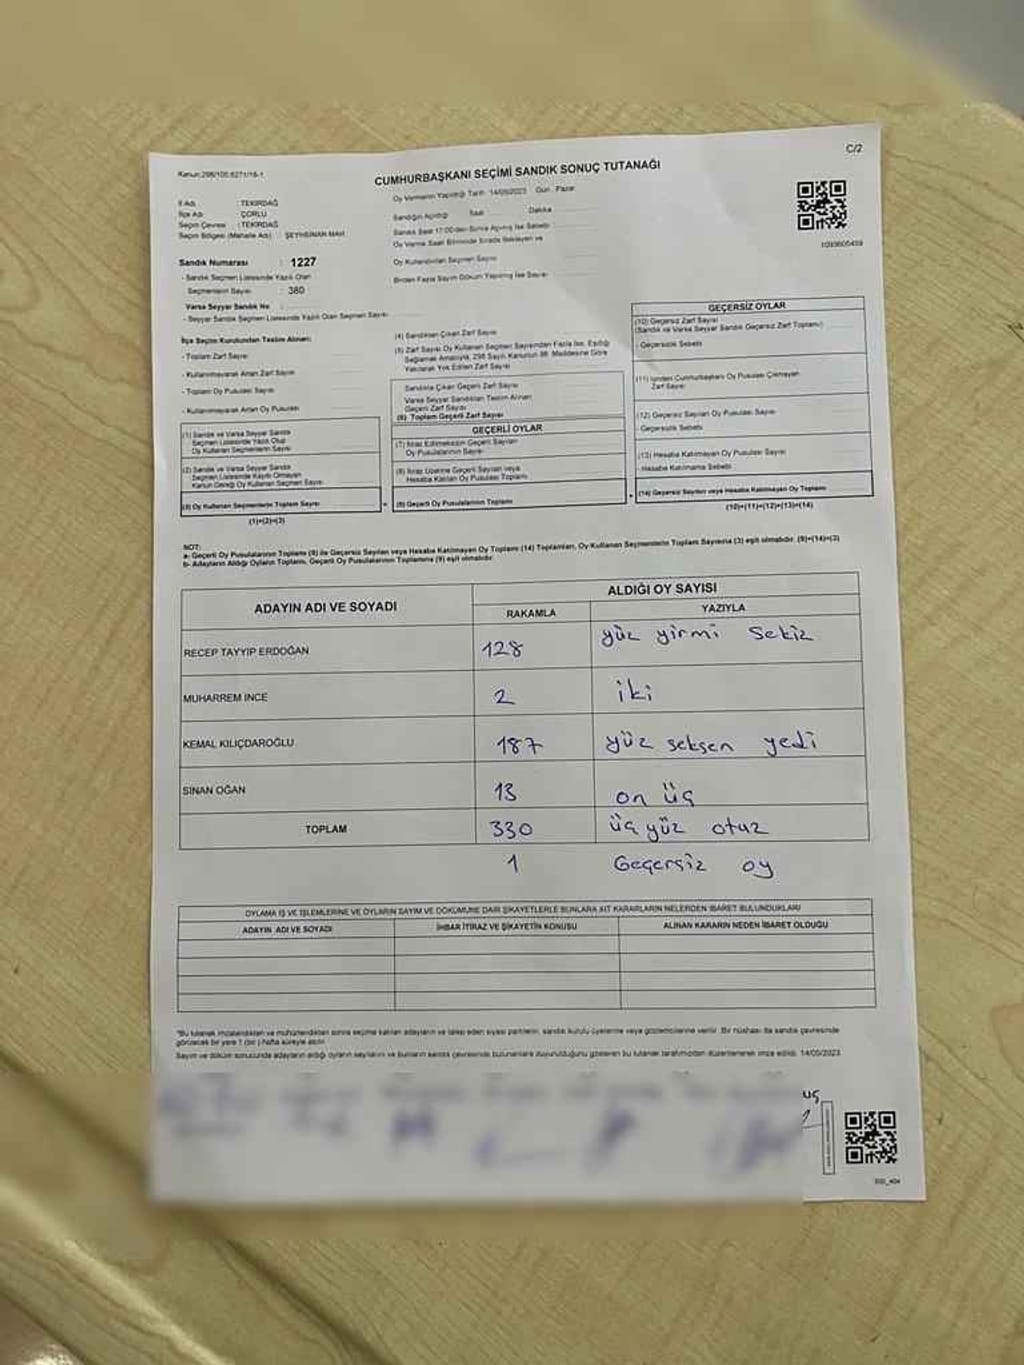 C/2
Kanun:298/105;6271/16-1
CUMHURBAŞKANI SEÇİMİ SANDIK SONUÇ TUTANAĞI
İl Adı : TEKİRDAĞ
İlçe Adı : ÇORLU
Seçim Çevresi : TEKİRDAĞ
Seçim Bölgesi (Mahalle Adı) : ŞEYHSİNAN MAH.
Oy Vermenin Yapıldığı Tarih : 14/05/2023 Gün : Pazar
Sandığın Açıldığı Saat Dakika
Sandık Saat 17:00'den Sonra Açılmış İse Sebebi
Oy Verme Saati Bitiminde Sırada Bekleyen ve
Oy Kullandırılan Seçmen Sayısı
Birden Fazla Sayım Döküm Yapılmış İse Sayısı
Sandık Numarası : 1227
- Sandık Seçmen Listesinde Yazılı Olan
Seçmenlerin Sayısı : 380
Varsa Seyyar Sandık No :
- Seyyar Sandık Seçmen Listesinde Yazılı Olan Seçmen Sayısı
İlçe Seçim Kurulundan Teslim Alınan;
- Toplam Zarf Sayısı
- Kullanılmayarak Artan Zarf Sayısı
- Toplam Oy Pusulası Sayısı
- Kullanılmayarak Artan Oy Pusulası
(1) Sandık ve Varsa Seyyar Sandık
Seçmen Listesinde Yazılı Olup
Oy Kullanan Seçmenlerin Sayısı
(2) Sandık ve Varsa Seyyar Sandık
Seçmen Listesinde Kayıtlı Olmayan
Kanun Gereği Oy Kullanan Seçmen Sayısı
(3) Oy Kullanan Seçmenlerin Toplam Sayısı
(1)+(2)=(3)
(4) Sandıktan Çıkan Zarf Sayısı
(5) Zarf Sayısı Oy Kullanan Seçmen Sayısından Fazla İse, Eşitliği
Sağlamak Amacıyla, 298 Sayılı Kanunun 98. Maddesine Göre
Yakılarak Yok Edilen Zarf Sayısı
Sandıkta Çıkan Geçerli Zarf Sayısı
Varsa Seyyar Sandıktan Teslim Alınan
Geçerli Zarf Sayısı
(6) Toplam Geçerli Zarf Sayısı
GEÇERLİ OYLAR
(7) İtiraz Edilmeksizin Geçerli Sayılan
Oy Pusulalarının Sayısı
(8) İtiraz Üzerine Geçerli Sayılan veya
Hesaba Katılan Oy Pusulası Toplamı
(9) Geçerli Oy Pusulalarının Toplamı
GEÇERSİZ OYLAR
(10) Geçersiz Zarf Sayısı
(Sandık ve Varsa Seyyar Sandık Geçersiz Zarf Toplamı)
- Geçersizlik Sebebi
(11) İçinden Cumhurbaşkanı Oy Pusulası Çıkmayan
Zarf Sayısı
(12) Geçersiz Sayılan Oy Pusulası Sayısı
- Geçersizlik Sebebi
(13) Hesaba Katılmayan Oy Pusulası Sayısı
- Hesaba Katılmama Sebebi
(14) Geçersiz Sayılan veya Hesaba Katılmayan Oy Toplamı
(10)+(11)+(12)+(13)=(14)
NOT:
a- Geçerli Oy Pusulalarının Toplamı (9) ile Geçersiz Sayılan veya Hesaba Katılmayan Oy Toplamı (14) Toplamları, Oy Kullanan Seçmenlerin Toplam Sayısına (3) eşit olmalıdır. (9)+(14)=(3)
b- Adayların Aldığı Oyların Toplamı, Geçerli Oy Pusulalarının Toplamına (9) eşit olmalıdır.
ADAYIN ADI VE SOYADI
ALDIĞI OY SAYISI
RAKAMLA YAZIYLA
RECEP TAYYIP ERDOĞAN 128 yüz yirmi sekiz
MUHARREM İNCE 2 iki
KEMAL KILIÇDAROĞLU 187 yüz seksen yedi
SİNAN OĞAN 13 on üç
TOPLAM 330 üç yüz otuz
1 Geçersiz oy
OYLAMA İŞ VE İŞLEMLERİNE VE OYLARIN SAYIM VE DÖKÜMÜNE DAİR ŞİKAYETLERLE BUNLARA AİT KARARLARIN NELERDEN İBARET BULUNDUKLARI
ADAYIN ADI VE SOYADI İHBAR İTİRAZ VE ŞİKAYETİN KONUSU ALINAN KARARIN NEDEN İBARET OLDUĞU
*Bu tutanak imzalandıktan ve mühürlendikten sonra seçime katılan adayların ve talep eden siyasi partilerin, sandık kurulu üyelerine veya gözlemcilerine verilir. Bir nüshası da sandık çevresinde
görülecek bir yere 1 (bir) hafta süreyle asılır.
Sayım ve döküm sonucunda adayların aldığı oyların sayılarını ve bunların sandık çevresinde bulunanlara duyurulduğunu gösteren bu tutanak tarafımızdan düzenlenerek imza edildi. 14/05/2023